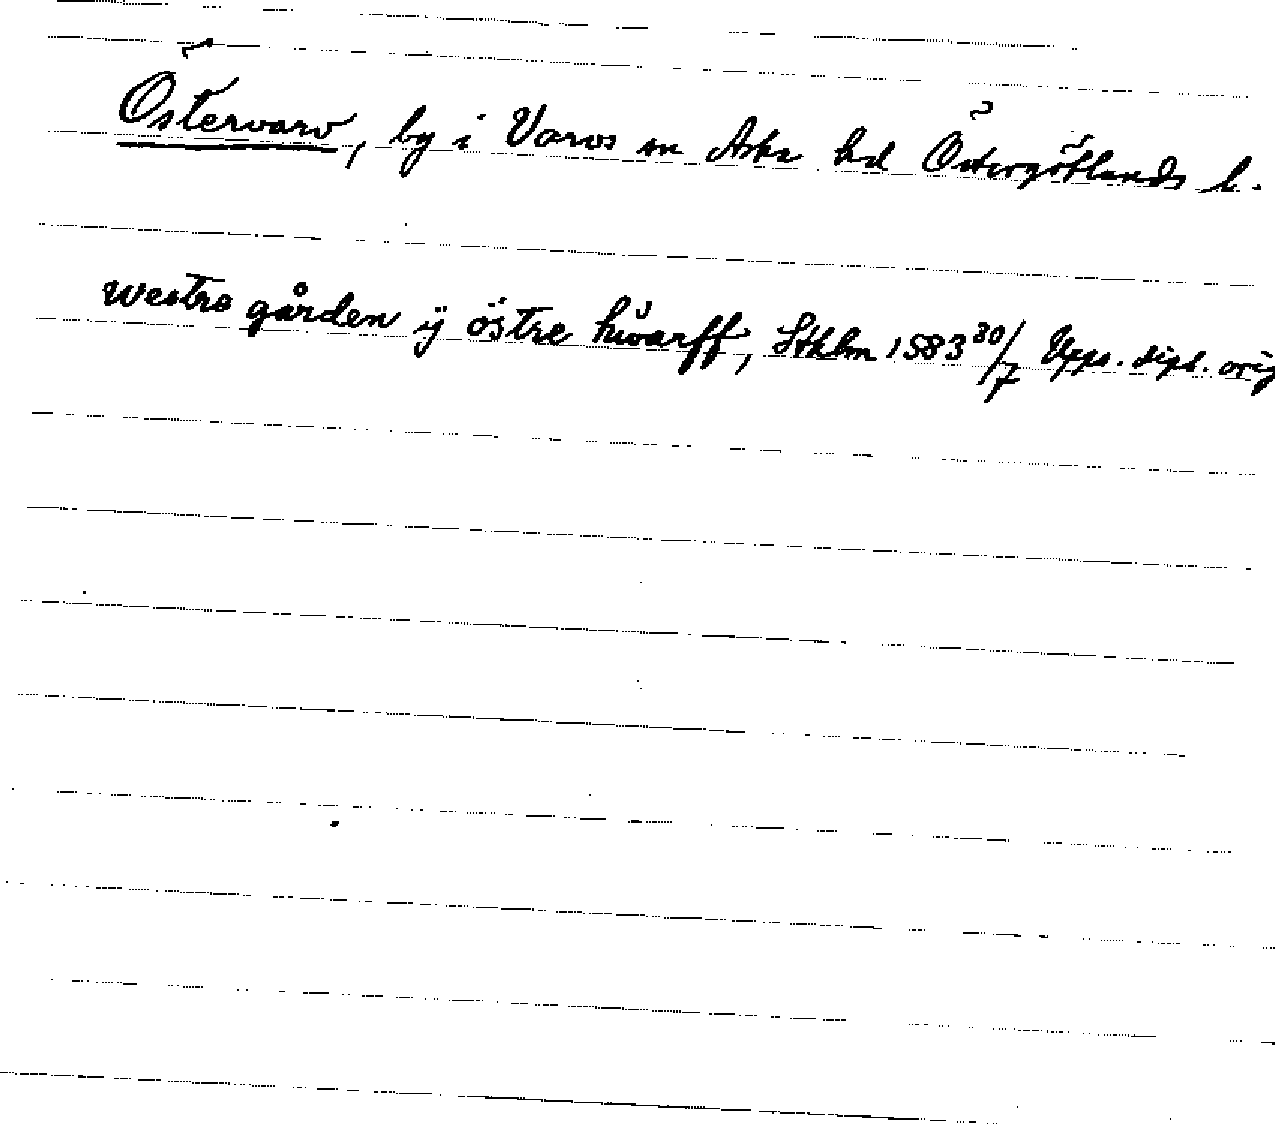 Östervarv, by i Varvs sn Aska hd Östergötlands l.
westre gården ÿ östre hŭarff, Sthlm 1583 30/7 Upps. dipl. orig